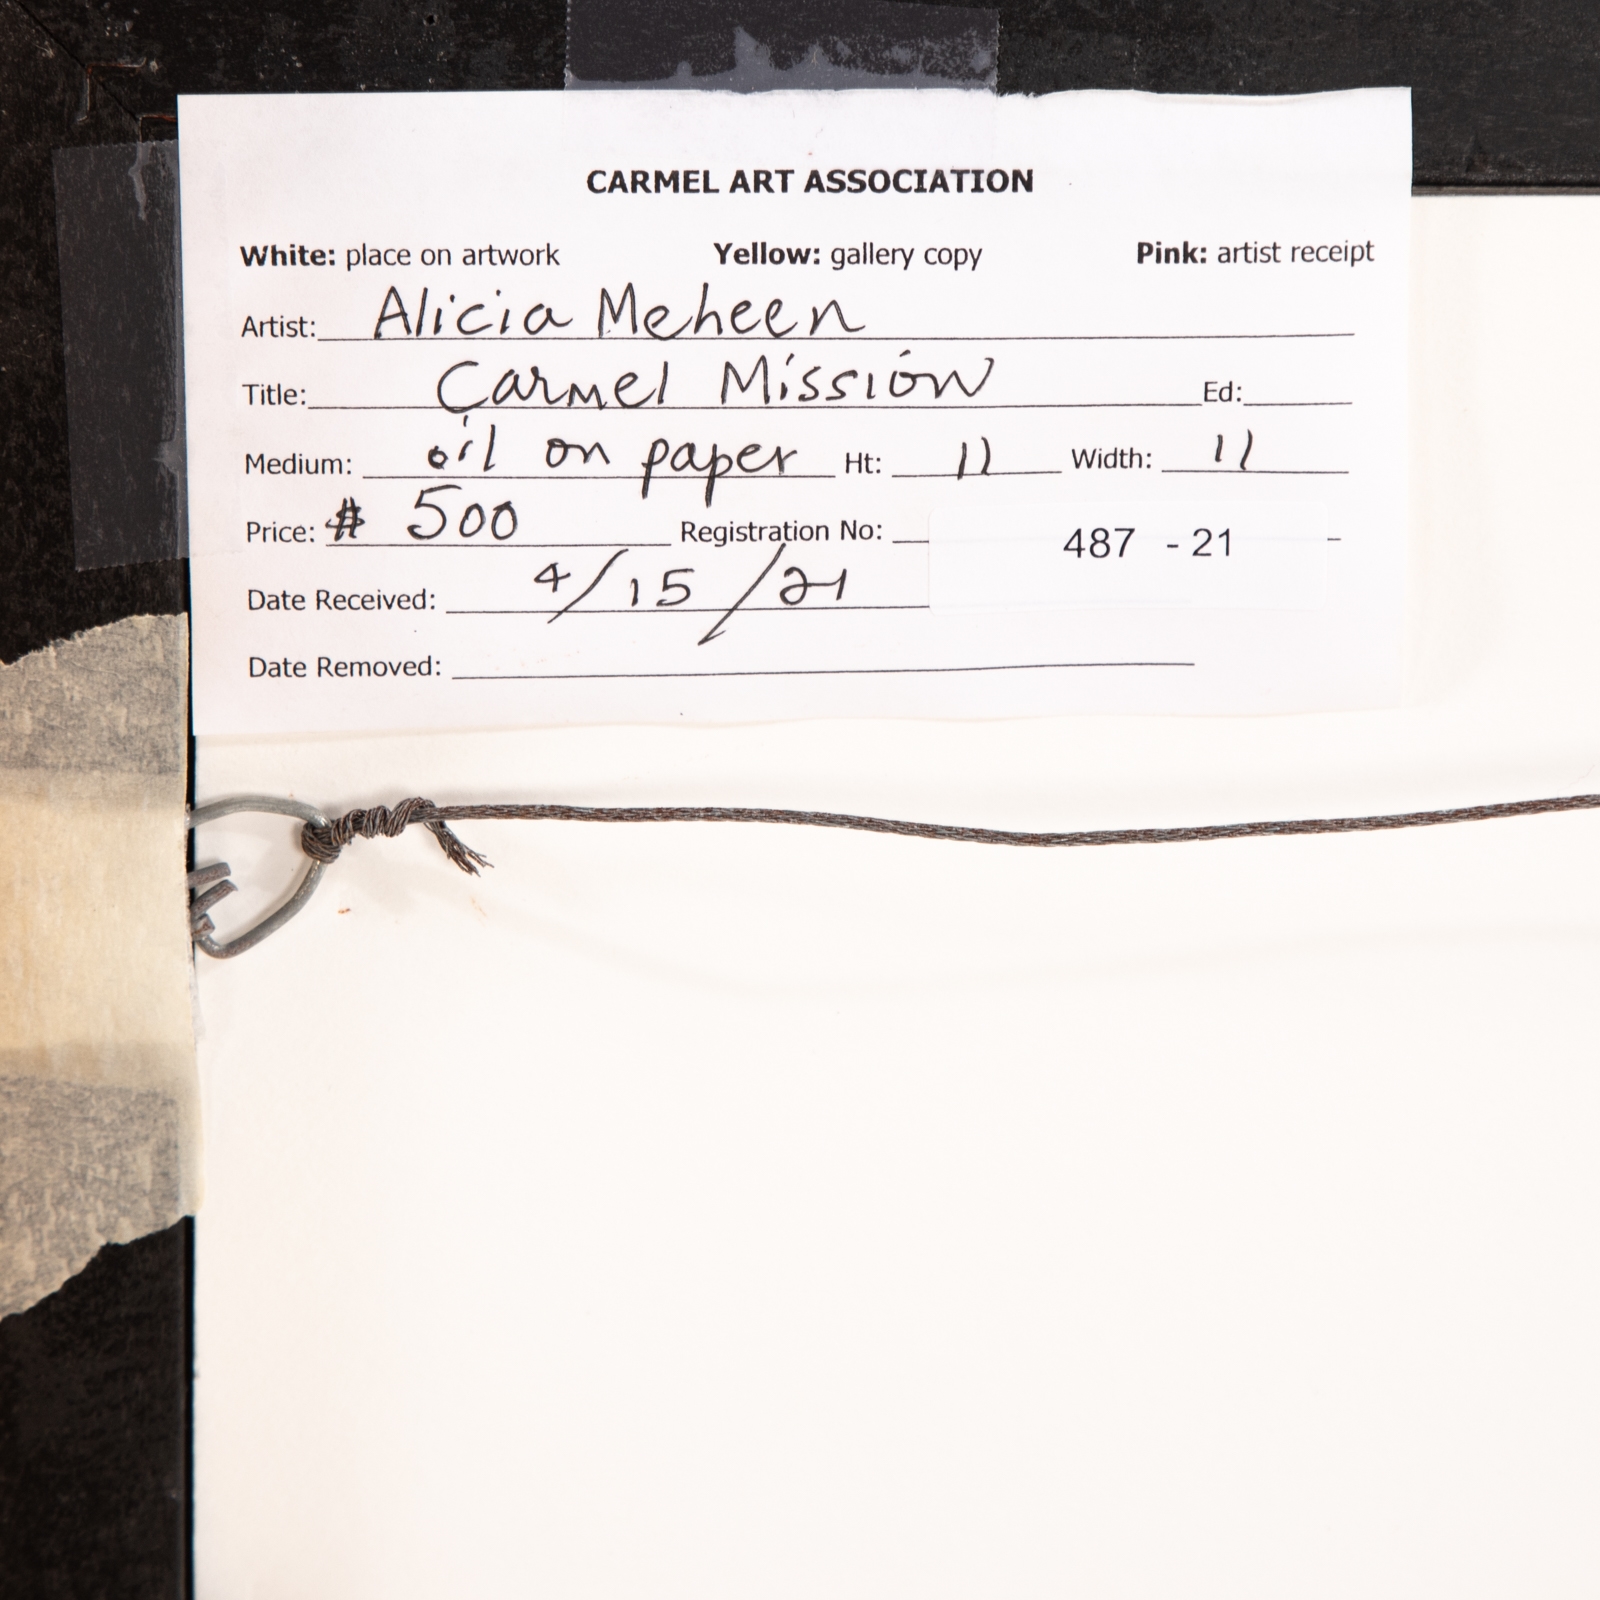 CARMEL ART ASSOCIATION
White: place on artwork Yellow: gallery copy Pink: artist receipt
Artist: Alicia Meheen
Title: Carmel Mission Ed:
Medium: oil on paper Ht: 11 Width: 11
Price: $ 500 Registration No: 487 - 21
Date Received: 4/15/21
Date Removed: